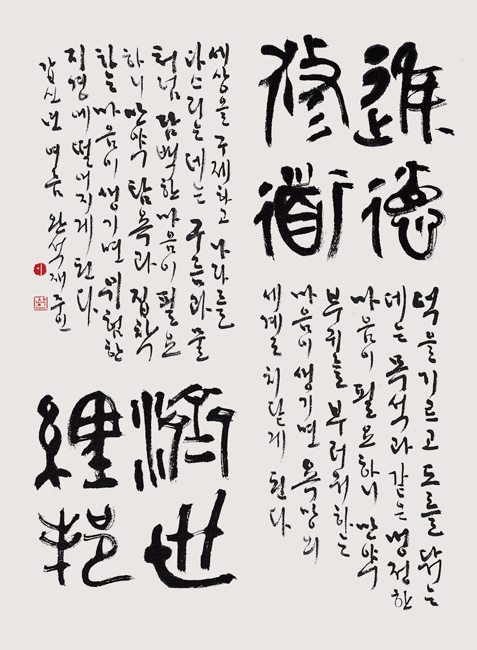 進德
修道
덕을 기르고 도를 닦는
데는 목석과 같은 명정한
마음이 필요하니 만약
부귀를 부러워 하는
마음이 생기면 욕망의
세계로 치닫게 된다
濟世
經邦
세상을 구제하고 나라를
다스리는 데는 구름과 물
처럼 담백한 마음이 필요
하니 만약 탐욕과 집착
하는 마음이 생기면 위험한
지경에 떨어지게 된다
갑신년 여름 완석재 주인